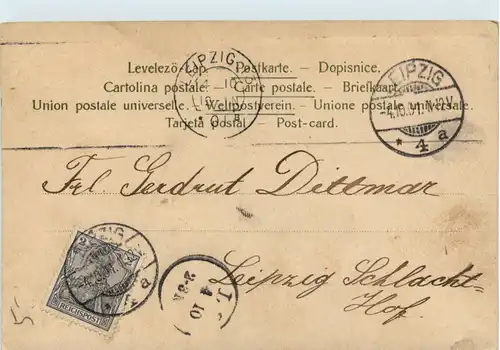 Levelező-Lap. — Postkarte. — Dopisnice.
Cartolina postale. — Carte postale. — Briefkaart.
Union postale universelle. — Weltpostverein. — Unione postale universale.
Tarjeta postal — Post-card.
LEIPZIG
LEIPZIG
-4.10.01.11-12V.
* 4 a
Frl. Gerdrut Dittmar
Leipzig Schlacht-
Hof.
2
REICHSPOST
a
J.
4
10
5-